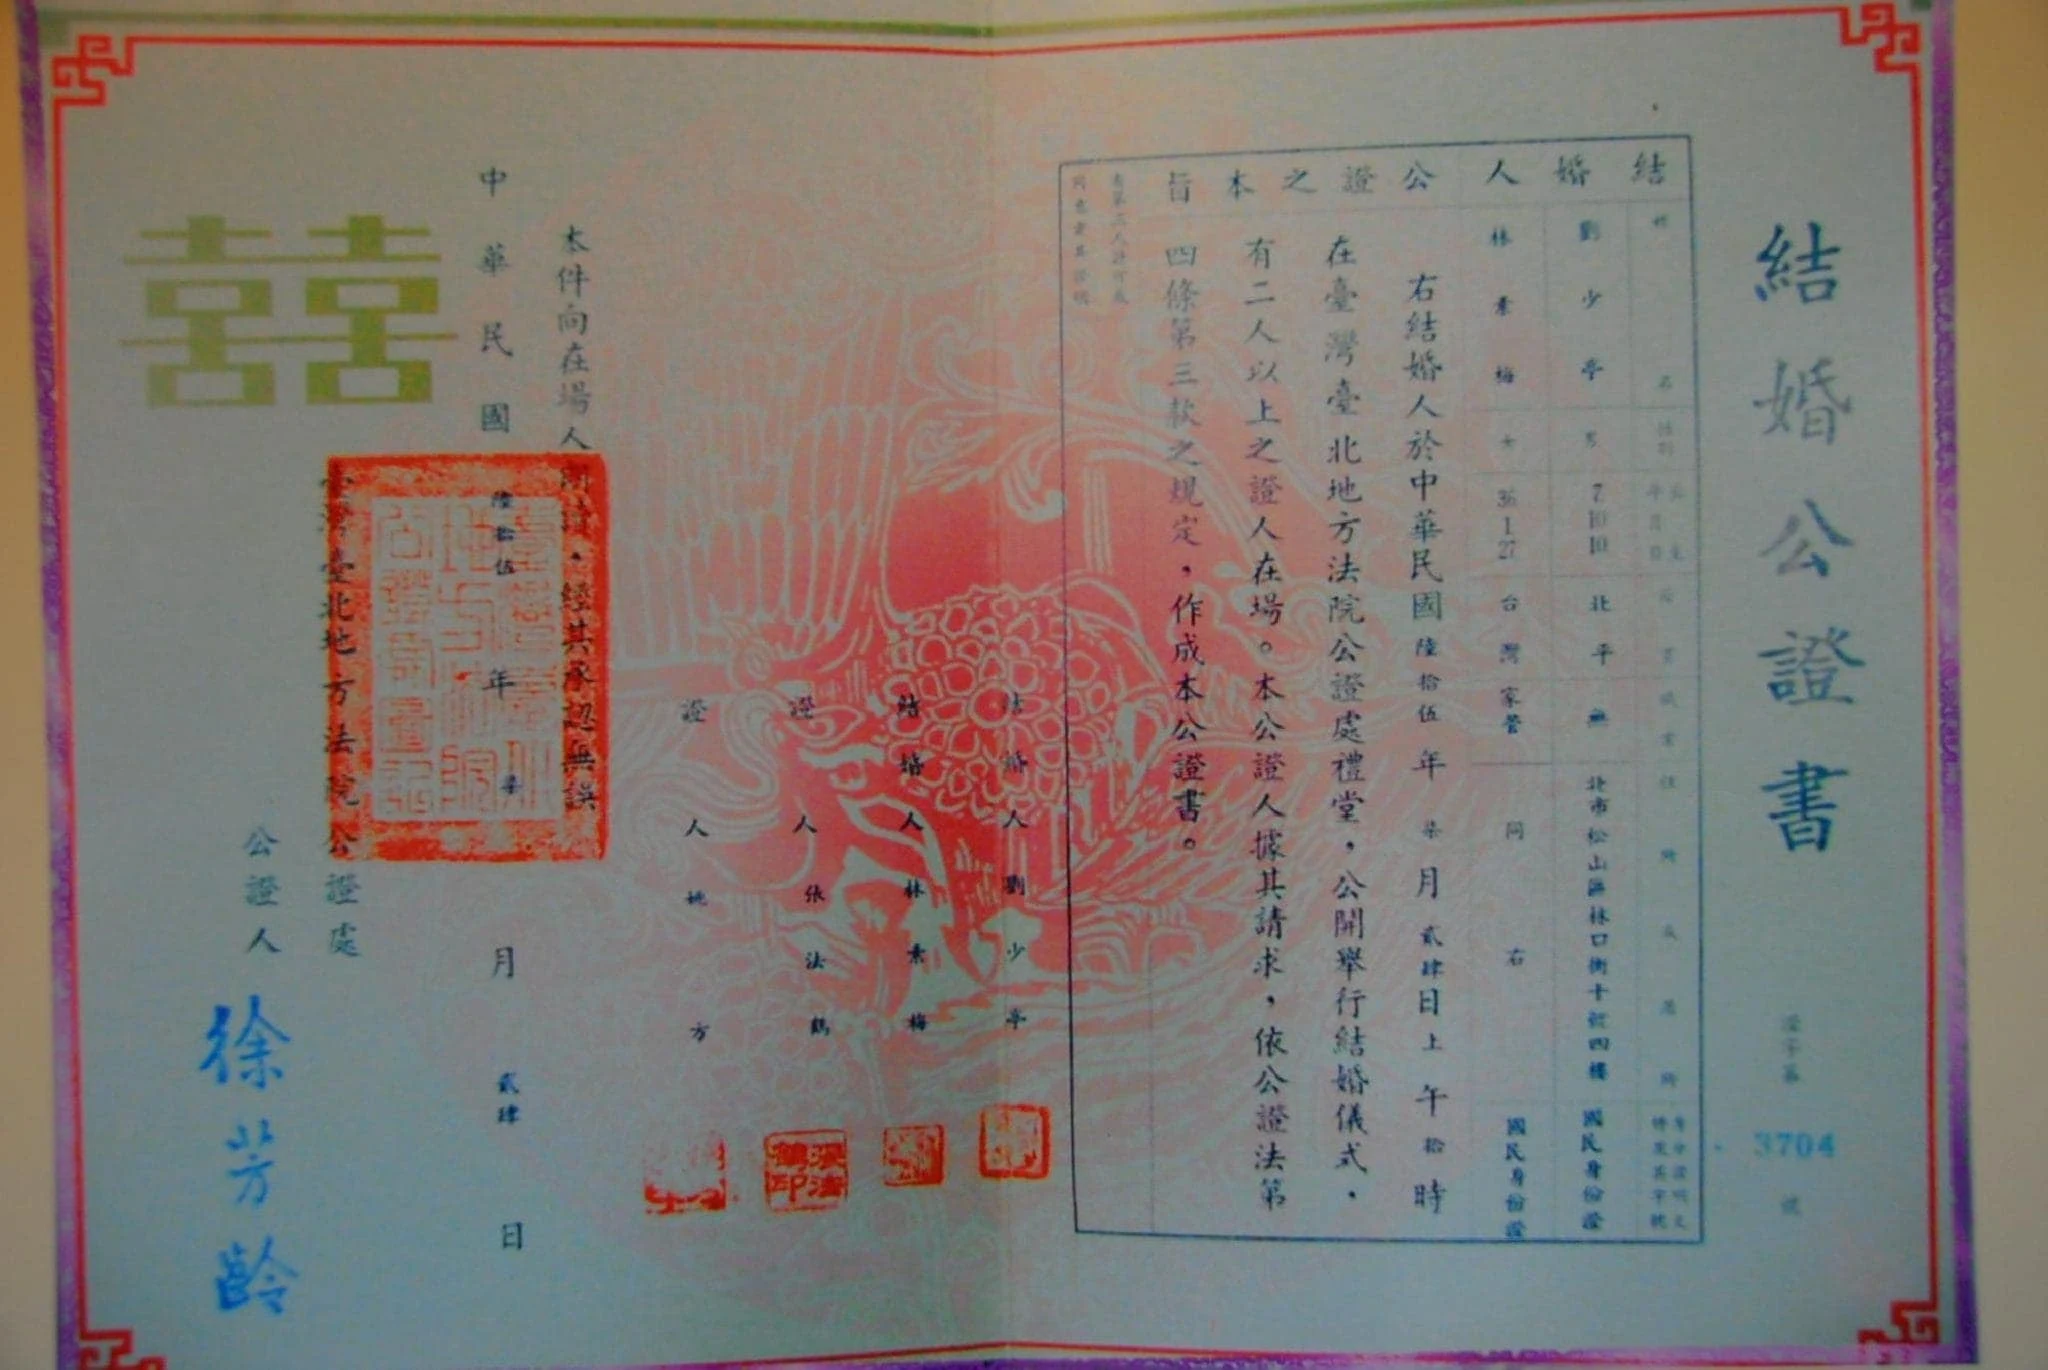 結婚公證書
證字第 3704 號
結婚人
姓名
性別
出生年月日
籍貫
職業
住所或居所
身分證明文件及其字號
劉少亭
男
7 10 10
北平
無
北市松山區林口街十號四樓
國民身份證
林素梅
女
36 1 27
台灣
家管
同右
國民身份證
公證之本旨
右結婚人於中華民國陸拾伍年柒月貳肆日上午拾時
在臺灣臺北地方法院公證處禮堂，公開舉行結婚儀式，
有二人以上之證人在場。本公證人據其請求，依公證法第
四條第三款之規定，作成本公證書。
結婚人 劉少亭
結婚人 林素梅
證人 張法鶴
證人 姚方
本件向在場人朗讀，經其承認無誤
中華民國陸拾伍年柒月貳肆日
臺灣臺北地方法院公證處
公證人 徐芳齡
囍